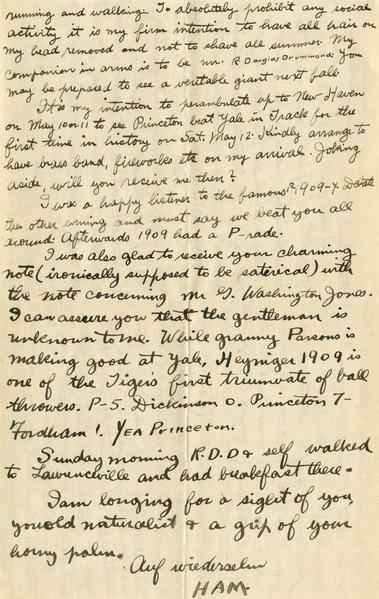 running and walking. To absolutely prohibit any social
activity it is my firm intention to have all hair on
my head removed and not to shave all summer. My
companion in arms is to be Mr. R Douglas Drummond. You
may be prepared to see a veritable giant next fall.
It is my intention to perambulate up to New Haven
on May 10 or 11 to see Princeton beat Yale in Track for the
first time in history on Sat. May 12. Kindly arrange to
have brass band, fireworks etc on my arrival. Joking
aside, will you receive me then?
I was a happy listener to the famous 1909-Y. Debate
the other evening and must say we beat you all
around. Afterwards 1909 had a P-rade.
I was also glad to receive your charming
note (ironically supposed to be saterical) with
the note concerning Mr G. Washington Jones.
I can asseure you that the gentleman is
unknown to me. While granny Parsons is
making good at Yale, Heyniger 1909 is
one of the Tigers first triumvate of ball
throwers. P-5. Dickinson 0. Princeton 7-
Fordham 1. YEA PRINCETON.
Sunday morning R.D.D & self walked
to Lawrenceville and had breakfast there.
I am longing for a sight of you
you old naturalist & a grip of your
horny palm.
Auf wiedersehn
HAM